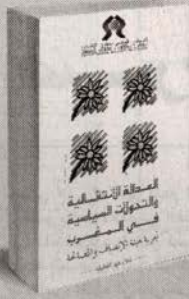 العدالة الانتقالية
والتحولات السياسية
في المغرب
تجربة هيئة الإنصاف والمصالحة